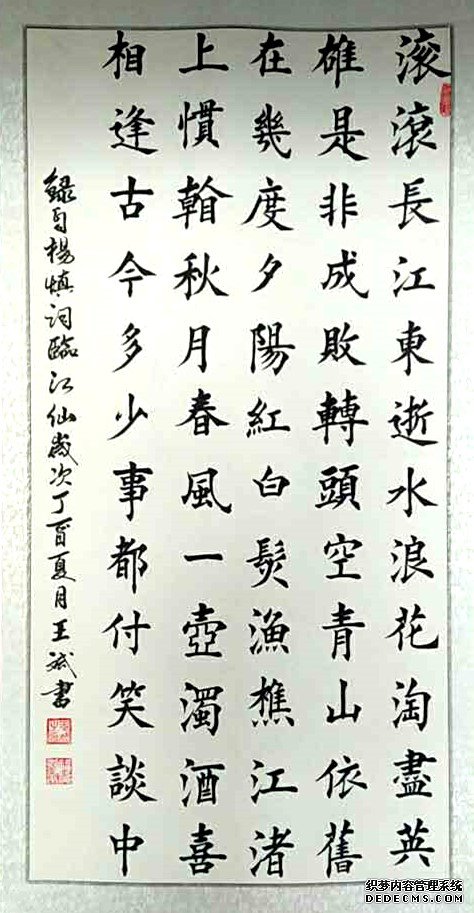 滚滾長江東逝水浪花淘盡英
雄是非成敗轉頭空青山依舊
在幾度夕陽紅白髮漁樵江渚
上慣看秋月春風一壺濁酒喜
相逢古今多少事都付笑談中
錄自楊慎词臨江仙歲次丁酉夏月王斌書
织梦内容管理系统
DEDECMS.COM